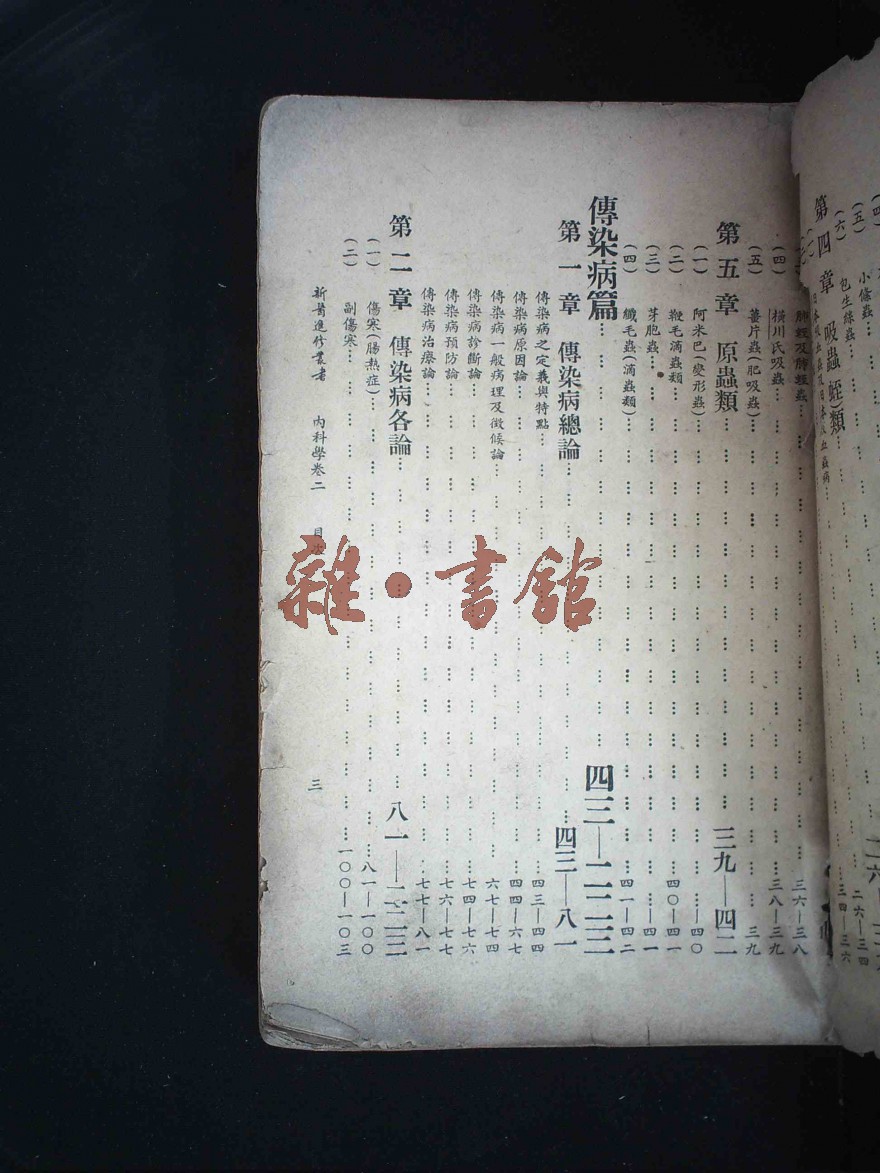 小絛蟲
包生絛蟲
第四章 吸蟲蛭類
日本吸血蟲及日本吸血蟲病
二六—三四
三四—三六
(三) 肺蛭及肺蛭蟲 三六—三八
(四) 橫川氏吸蟲 三八—三九
(五) 薑片蟲(肥吸蟲) 三九
第五章 原蟲類 三九—四二
(一) 阿米巴(變形蟲) —四〇
(二) 鞭毛滴蟲類 四〇—四一
(三) 芽胞蟲 —四一
(四) 纖毛蟲(滴蟲類) 四一—四二
傳染病篇 四三—二二三
第一章 傳染病總論 四三—八一
傳染病之定義與特點 四三—四四
傳染病原因論 四四—六七
傳染病一般病理及徵候論 六七—七四
傳染病診斷論 七四—七六
傳染病預防論 七六—七七
傳染病治療論 七七—八一
第二章 傳染病各論 八一—二二三
(一) 傷寒(腸熱症) 八一—一〇〇
(二) 副傷寒 一〇〇—一〇三
新醫進修叢書 內科學卷二 目次 三
雜·書館